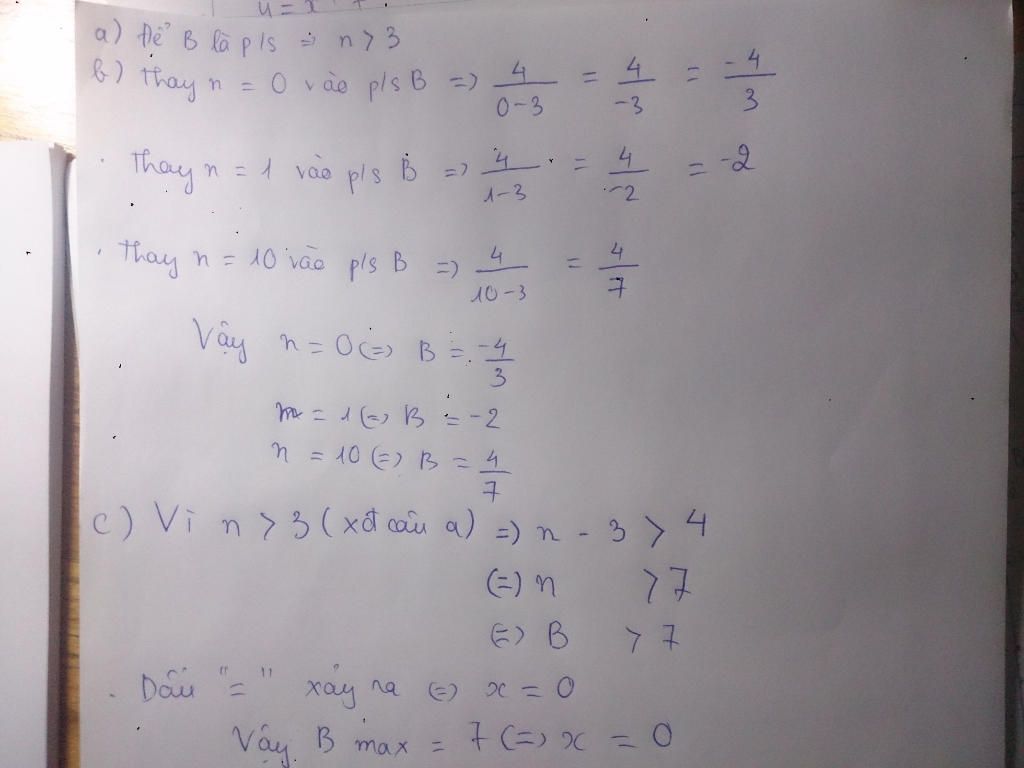 a) Để B là p/s => n > 3
b) Thay n = 0 vào p/s B => 4/(0-3) = 4/-3 = -4/3
Thay n = 1 vào p/s B => 4/(1-3) = 4/-2 = -2
Thay n = 10 vào p/s B => 4/(10-3) = 4/7
Vậy n = 0 (=> B = -4/3
n = 1 (=> B = -2
n = 10 (=> B = 4/7
c) Vì n > 3 (xđ câu a) => n - 3 > 4
(=) n > 7
(=> B > 7
Dấu "=" xảy ra (=) x = 0
Vậy B max = 7 (=> x = 0